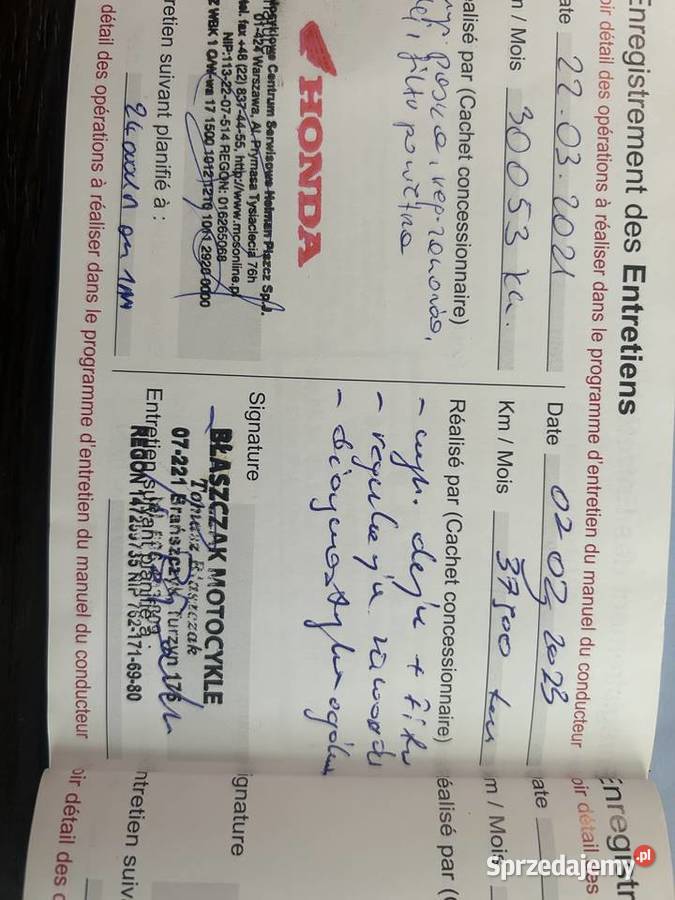 Enregistrement des Entretiens
oir détail des opérations à réaliser dans le programme d'entretien du manuel du conducteur
ate 22.03.2021
m / Mois 30053 km.
éalisé par (Cachet concessionnaire)
paska,
filtr powietrza
HONDA
Centrum Serwisowe Helman Piszcz Sp.J.
01-424 Warszawa, Al. Prymasa Tysiaclecia 76h
tel. fax +48 (22) 837-44-55, http://www.mosonline.pl
NIP:113-22-07-514 REGON: 016265068
retien suivant planifié à :
24
détail des opérations à réaliser dans le programme d'entretien du manuel du conducteur
Date 02 02 2023
Km / Mois 37500 km
Réalisé par (Cachet concessionnaire)
- wym. oleju + filtr
- regulacja
-
Signature
BŁASZCZAK MOTOCYKLE
Tomasz Błaszczak
07-221 Brańszczyk, Turzyn 176
Entretien suivant planifié :
NIP 762-171-69-80
Enregistr
oir détail des
ate
m / Mois
éalisé par (C
ignature
ntretien suiv
oir détail des o
Sprzedajemy.pl